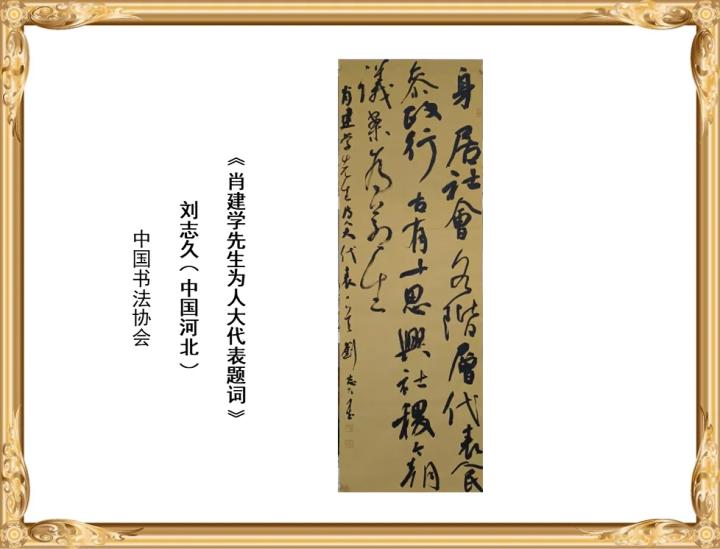 身居社會各階層代表人民
叅政行古有十思興社稷今朝
議案為蒼生
肖建学先生为人大代表 劉志久
《肖建学先生为人大代表题词》
刘志久（中国河北）
中国书法协会